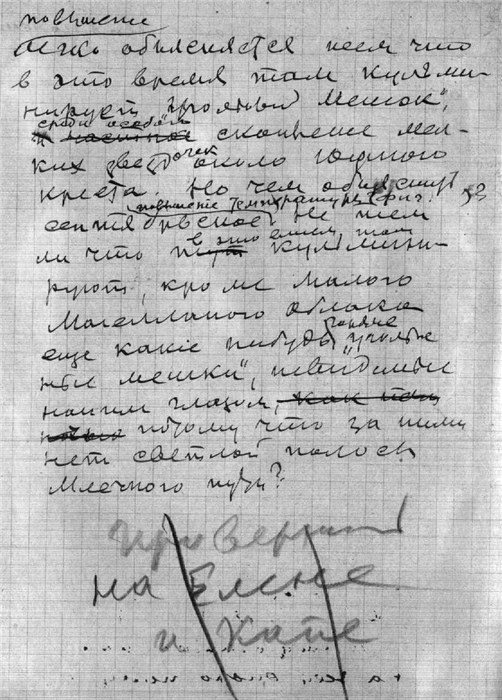 повышение
легко объясняется всем что
в это время там кульми-
нирует "угольный мешок",
среди особого
и частное скопление мел-
ких звездочек около южного
креста. Но чем объяснить
повышение температуры
сентябрьское? Не тем
ли что в это время там
кульмини-
руют, кроме Малого
Магелланого облака
еще какіе нибудь "уголь-
ные мешки", невидимые
нашим глазом,
потому что за ними
нет светлой полосы
Млечного пути?
проверить
на Елене
и Кате